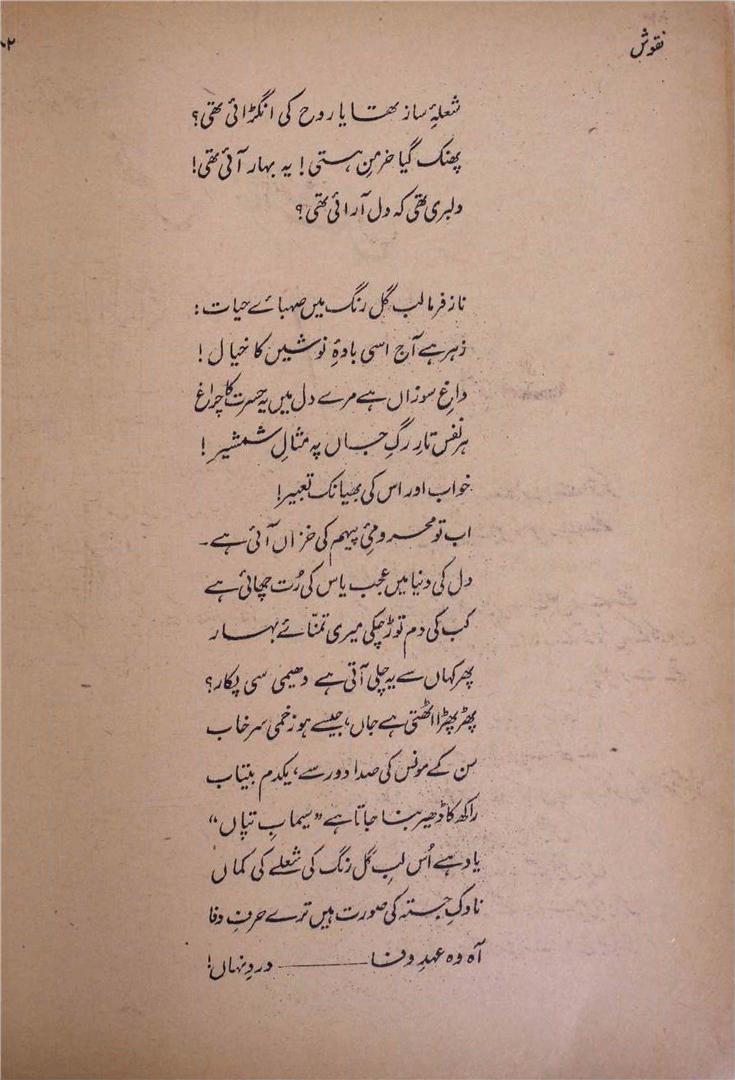 نقوش
شعلۂ ساز تھا یا روح کی انگڑائی تھی؟
پھنک گیا خرمنِ ہستی! یہ بہار آئی تھی!
دلبری تھی کہ دل آرائی تھی؟
ناز فرما لب گل رنگ میں صہبائے حیات:
زہر ہے آج اسی بادۂ نوشیں کا خیال!
داغِ سوزاں ہے مرے دل میں یہ حسرت کا چراغ
ہر نفس تارِ رگِ جاں پہ مثالِ شمشیر!
خواب اور اس کی بھیانک تعبیر!
اب تو محرومیٔ پیہم کی خزاں آئی ہے۔
دل کی دنیا میں عجب یاس کی رُت چھائی ہے
کب کی دم توڑ چکی میری تمنّائے بہار
پھر کہاں سے یہ چلی آتی ہے دھیمی سی پکار؟
پھڑپھڑا اٹھتی ہے جاں، جیسے ہو زخمی سرخاب
سن کے مونس کی صدا دور سے، یکدم بیتاب
راکھ کا ڈھیر بنا جاتا ہے ”سیمابِ تپاں“
یاد ہے اُس لبِ گل رنگ کی شعلے کی کماں
ناوکِ جستہ کی صورت ہیں ترے حرفِ وفا
آہ وہ عہدِ وفا ——— دردِ نہاں!